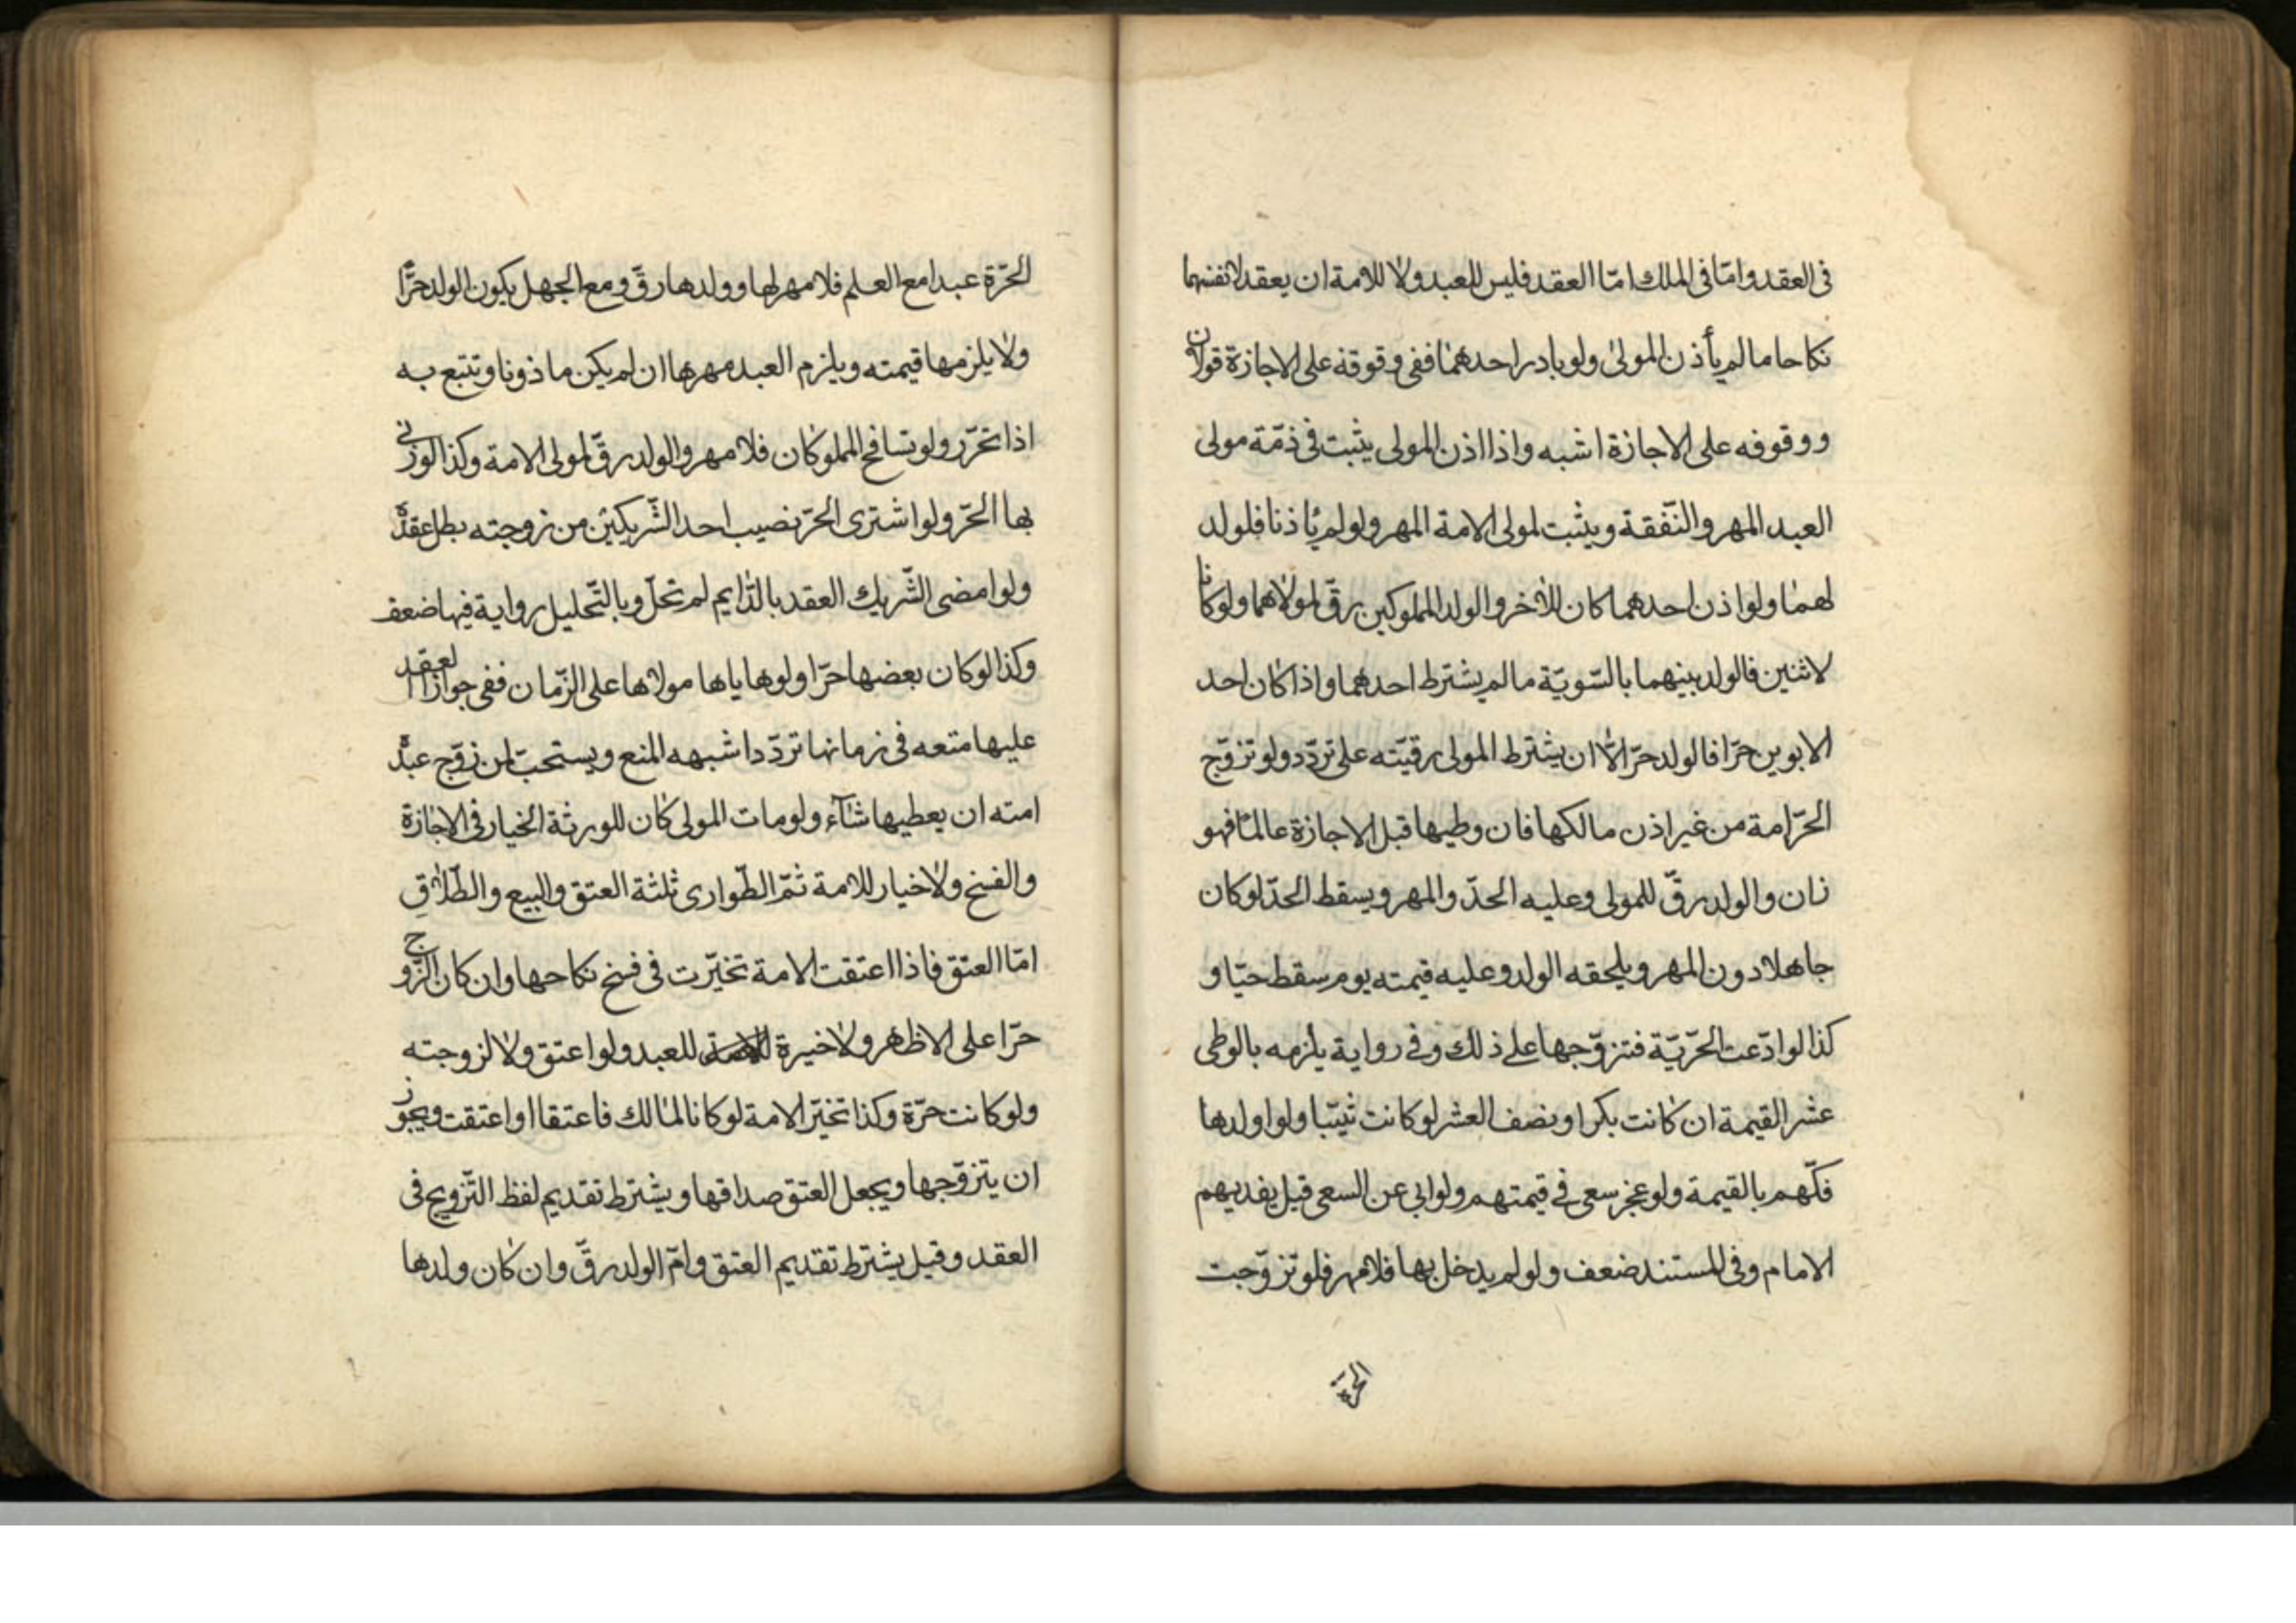 فى العقد وامّا فى الملك امّا العقد فليس للعبد ولا للامة ان يعقد لانفسهما
نكاحا ما لم يأذن المولىٰ ولو بادر احدهما ففى وقوفه على الاجازة قولان
ووقوفه على الاجازة اشبه واذا اذن المولى يثبت فى ذمّة مولى
العبد المهر والنّفقة ويثبت لمولى الامة المهر ولو لم يأذنا فلولد
لهما ولو اذن احدهما كان للاخر والولد المملوكين رقّ لمولاهما ولو كانا
لاثنين فالولد بينهما بالسّويّة ما لم يشترط احدهما واذا كان احد
الابوين حرّا فالولد حرّ الّا ان يشترط المولى رقيّته على تردّد ولو تزوّج
الحرّ امة من غير اذن مالكها فان وطيها قبل الاجازة عالمًا فهو
زان والولد رقّ للمولى وعليه الحدّ والمهر ويسقط الحدّ لو كان
جاهلا دون المهر ويلحقه الولد وعليه قيمته يوم سقط حيّا و
كذا لو ادّعت الحرّيّة فتزوّجها على ذلك وفى رواية يلزمه بالوطى
عشر القيمة ان كانت بكرا ونصف العشر لو كانت ثيّبا ولو اولدها
فكّهم بالقيمة ولو عجز سعى فى قيمتهم ولو ابى عن السعى قيل يفديهم
الامام وفى المستند ضعف ولو لم يدخل بها فلا مهر فلو تزوّجت
الحرّة
الحرّة عبدا مع العلم فلا مهر لها وولدها رقّ ومع الجهل يكون الولد حرًّا
ولا يلزمها قيمته ويلزم العبد مهرها ان لم يكن ماذونا وتتبع به
اذا تحرّر ولو تسافح المملوكان فلا مهر والولد رقّ لمولى الامة وكذا لو زنى
بها الحرّ ولو اشترى الحرّ نصيب احد الشّريكين من زوجته بطل عقده
ولو امضى الشّريك العقد بالدّايم لم تحلّ وبالتّحليل رواية فيها ضعف
وكذا لو كان بعضها حرّا ولو هاياها مولاها على الزّمان ففى جواز العقد
عليها متعه فى زمانها تردّد اشبهه المنع ويستحبّ لمن زوّج عبده
امته ان يعطيها شآء ولو مات المولى كان للورثة الخيار فى الاجازة
والفسخ ولا خيار للامة ثمّ الطّوارى ثلثة العتق والبيع والطّلاق
امّا العتق فاذا اعتقت الامة تخيّرت فى فسخ نكاحها وان كان الزّوج
حرّا على الاظهر ولا خيرة للامة للعبد ولو اعتق ولا لزوجته
ولو كانت حرّة وكذا تخيّر الامة لو كانا لمالك فاعتقا او اعتقت ويجوز
ان يتزوّجها ويجعل العتق صداقها ويشترط تقديم لفظ التّزويج فى
العقد وقيل يشترط تقديم العتق وامّ الولد رقّ وان كان ولدها